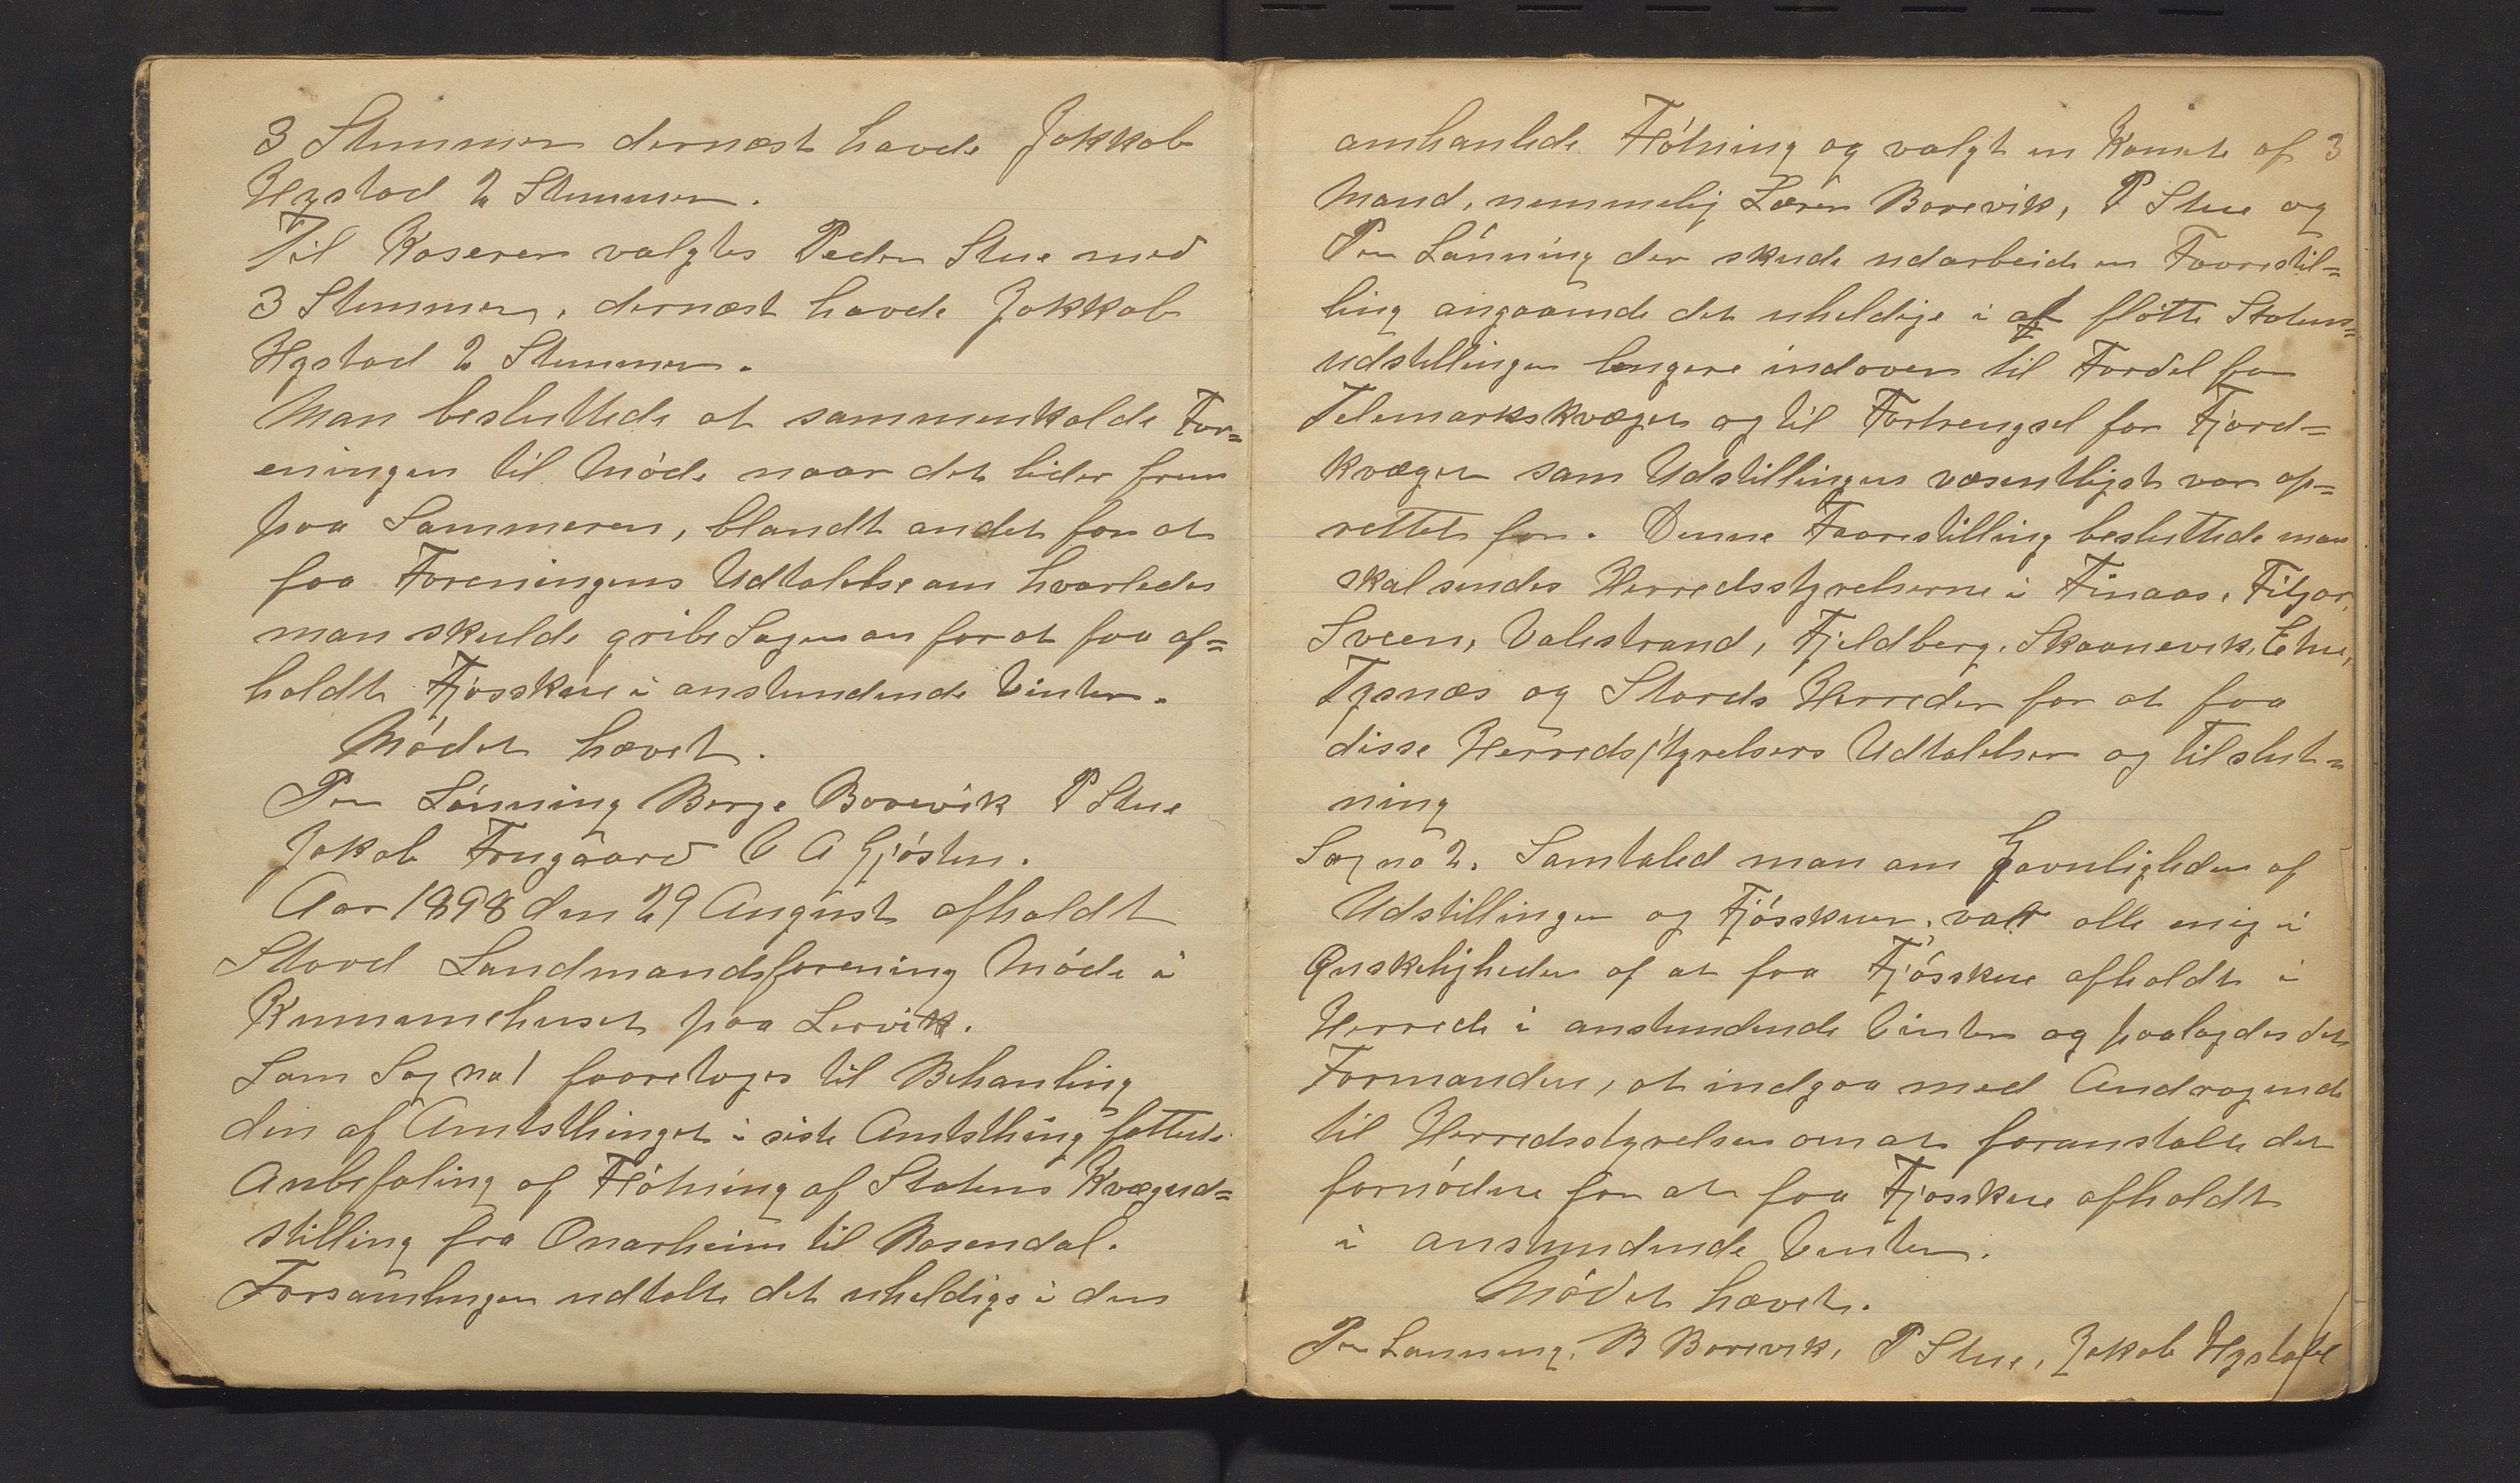 3 Stemmer dernæst havde Jokkob
Hystad 2 Stemmer.
Til Kaserer valgtes Peder Stue med
3 Stemmer, dernæst havde Jokkob
Hystad 2 Stemmer.
Man besluttede at sammenkalde For=
eningen til Møde naar det lider frem
paa Sommeren, blandt andet for at
faa Foreningens Udtalelse om hvorledes
man skulde gribe Sagen an for at faa af=
holdt Fjosskue i anstundende Vinter.
Mødet hævet.
Per Lønning Berge Borevik P Stue
Jakob Frugaard O A Gjøsten.
Aar 1898 den 29 August afholdt
Stord Landmandsforening Møde i
Kummunehuset paa Lervik.
Som Sag no 1 fooretoges til Behanling
den af Amtsthinget i siste Amtsthing fattede
Anbefaling af Fløtning af Statens Kvægud=
stilling fra Onarheim til Rosendal.
Forsamlingen udtalte det uheldige i den
omhanlede Fløtning og valgt en Komite af 3
Mand, nemmelig Lærer Borevik, P Stue og
Per Lønning der skude udarbeide en Foorestil=
ling angaaende det uheldige i at fløtte Statens=
udstillingen lengere indover til Fordel for
Telemarkskvæget og til Fortrengsel for Fjord=
kvæget som Udstillingen væsentligst var op=
rettet for. Denne Foorestilling besluttede man
skal sendes Herredsstyrelserne i Finaas, Fitjar,
Sveen, Valestrand, Fjeldberg, Skaanevik, Etne,
Tysnæs og Stords Herreder for at faa
disse Herredsstyrelsers Udtalelser og Tilslut=
ning
Sag no 2. Samtaled man om Gavnligheden af
Udstillinger og Fjøsskuer, var alle enig i
Ønskeligheden af at faa Fjøsskue afholdt i
Herrede i anstundende Vinter og paalagdes det
Formanden, at indgaa med Andragende
til Herredsstyrelsen om at foranstalte det
fornødne for at faa Fjosskue afholdt
i anstundende Vinter.
Mødet hævet.
Per Lønning, B Borevik, P Stue, Jakob Hystad